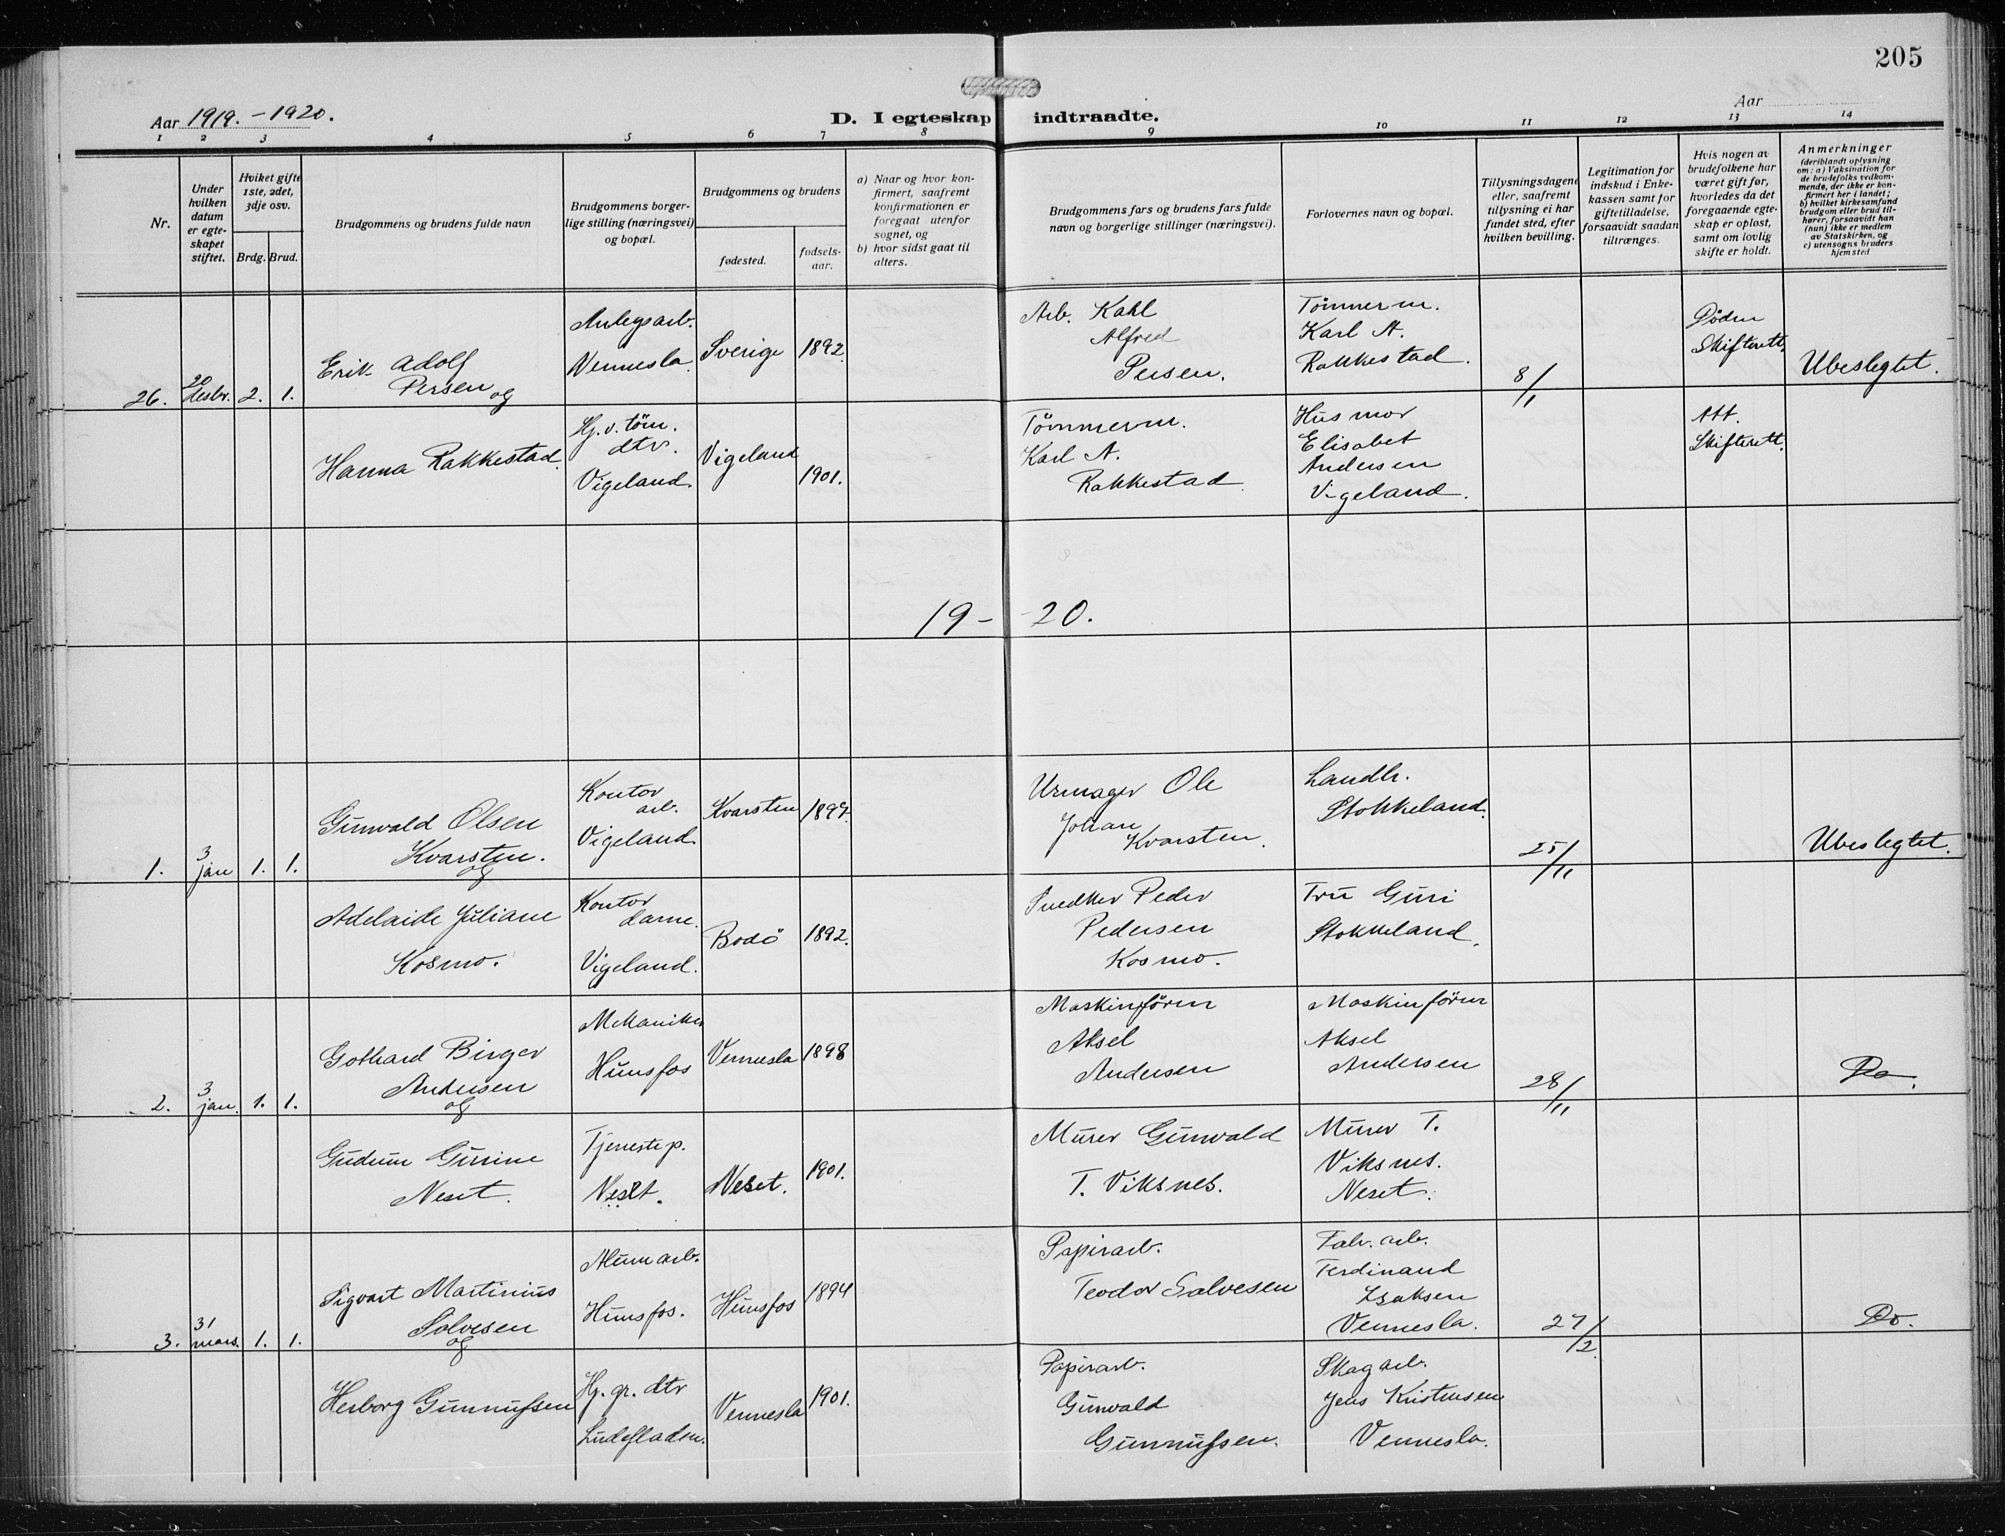 205
Aar 1919. - 1920.
D. I egteskap indtraadte.
Aar
1 2 3 4 5 6 7 8 9 10 11 12 13 14
Nr.
Under hvilken datum er egteskapet stiftet.
Hviket gifte 1ste, 2det, 3dje osv.
Brdg. Brud.
Brudgommens og brudens fulde navn
Brudgommens borgerlige stilling (næringsvei) og bopæl.
Brudgommens og brudens
fødested.
fødselsaar.
a) Naar og hvor konfirmert, saafremt konfirmationen er foregaat utenfor sognet, og
b) hvor sidst gaat til alters.
Brudgommens fars og brudens fars fulde navn og borgerlige stillinger (næringsvei).
Forlovernes navn og bopæl.
Tillysningsdagene eller, saafremt tillysning ei har fundet sted, efter hvilken bevilling.
Legitimation for indskud i Enkekassen samt for giftetilladelse, forsaavidt saadan tiltrænges.
Hvis nogen av brudefolkene har været gift før, hvorledes da det foregaaende egteskap er opløst, samt om lovlig skifte er holdt.
Anmerkninger
(deriblandt oplysning om: a) Vaksination for de brudefolks vedkommende, der ikke er konfirmert her i landet; b) hvilket kirkesamfund brudgom eller brud tilhører, forsaavidt han (hun) ikke er medlem av Statskirken, og c) utensogns bruders hjemsted
26.
20
Desbr.
2. 1.
Erik Adolf
Persen og
Anlegsarb.
Vennesla
Sverige
1892.
Arb. Kahl
Alfred
Persen.
Tømmerm.
Karl A.
Rakkestad.
8/1
Døden
Skifterett.
Ubeslegtet.
Hanna Rakkestad.
Hj. v. tøm.
dtv.
Vigeland.
Vigeland
1901.
Tømmerm.
Karl A.
Rakkestad
Husmor
Elisabet
Andersen
Vigeland.
Att.
Skifterett.
19- -20.
1.
3
jan
1. 1.
Gunvald Olsen
Kvarsten.
og
Kontor
arb.
Vigeland.
Kvarsten
1897.
Urmager Ole
Johan
Kvarsten.
Landh.
Stokkeland.
25/11
Ubeslegtet.
Adelaide Juliane
Kosmo.
Kontor
dame.
Vigeland.
Bodö
1892.
Snedker Peder
Pedersen
Kosmo.
Fru Guri
Stokkeland.
2.
3
jan.
1. 1.
Gothard Birger
Andersen
og
Mekaniker
Hunsfos
Vennesla
1898
Maskinfører
Aksel
Andersen
Maskinfører
Aksel
Andersen
28/11
Do.
Gudrun Gurine
Neset.
Tjenestep.
Neset.
Neset.
1901.
Murer Gunvald
T. Viksnes.
Murer T.
Viksnes.
Neset.
3.
31
mars.
1. 1.
Sigvart Martinius
Salvesen
og
Alumarb.
Hunsfos.
Hunsfos
1894
Papirarb.
Teodor Salvesen
Fabr. arb.
Ferdinand
Isaksen
Vennesla.
27/2.
Do.
Herborg Gunnufsen
Hj. gr. dtr
Lundefladen.
Vennesla
1901.
Papirarb.
Gunvald
Gunnufsen.
Skogarb.
Jens Kristensen
Vennesla.